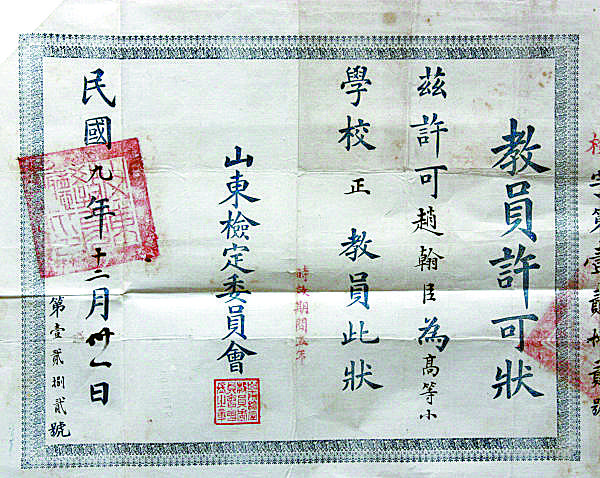 字第壹貳捌貳號
教員許可狀
茲許可趙翰臣為高等小
學校正教員此狀
時效期間五年
山東檢定委員會
民國九年十二月卅一日
第壹貳捌貳號